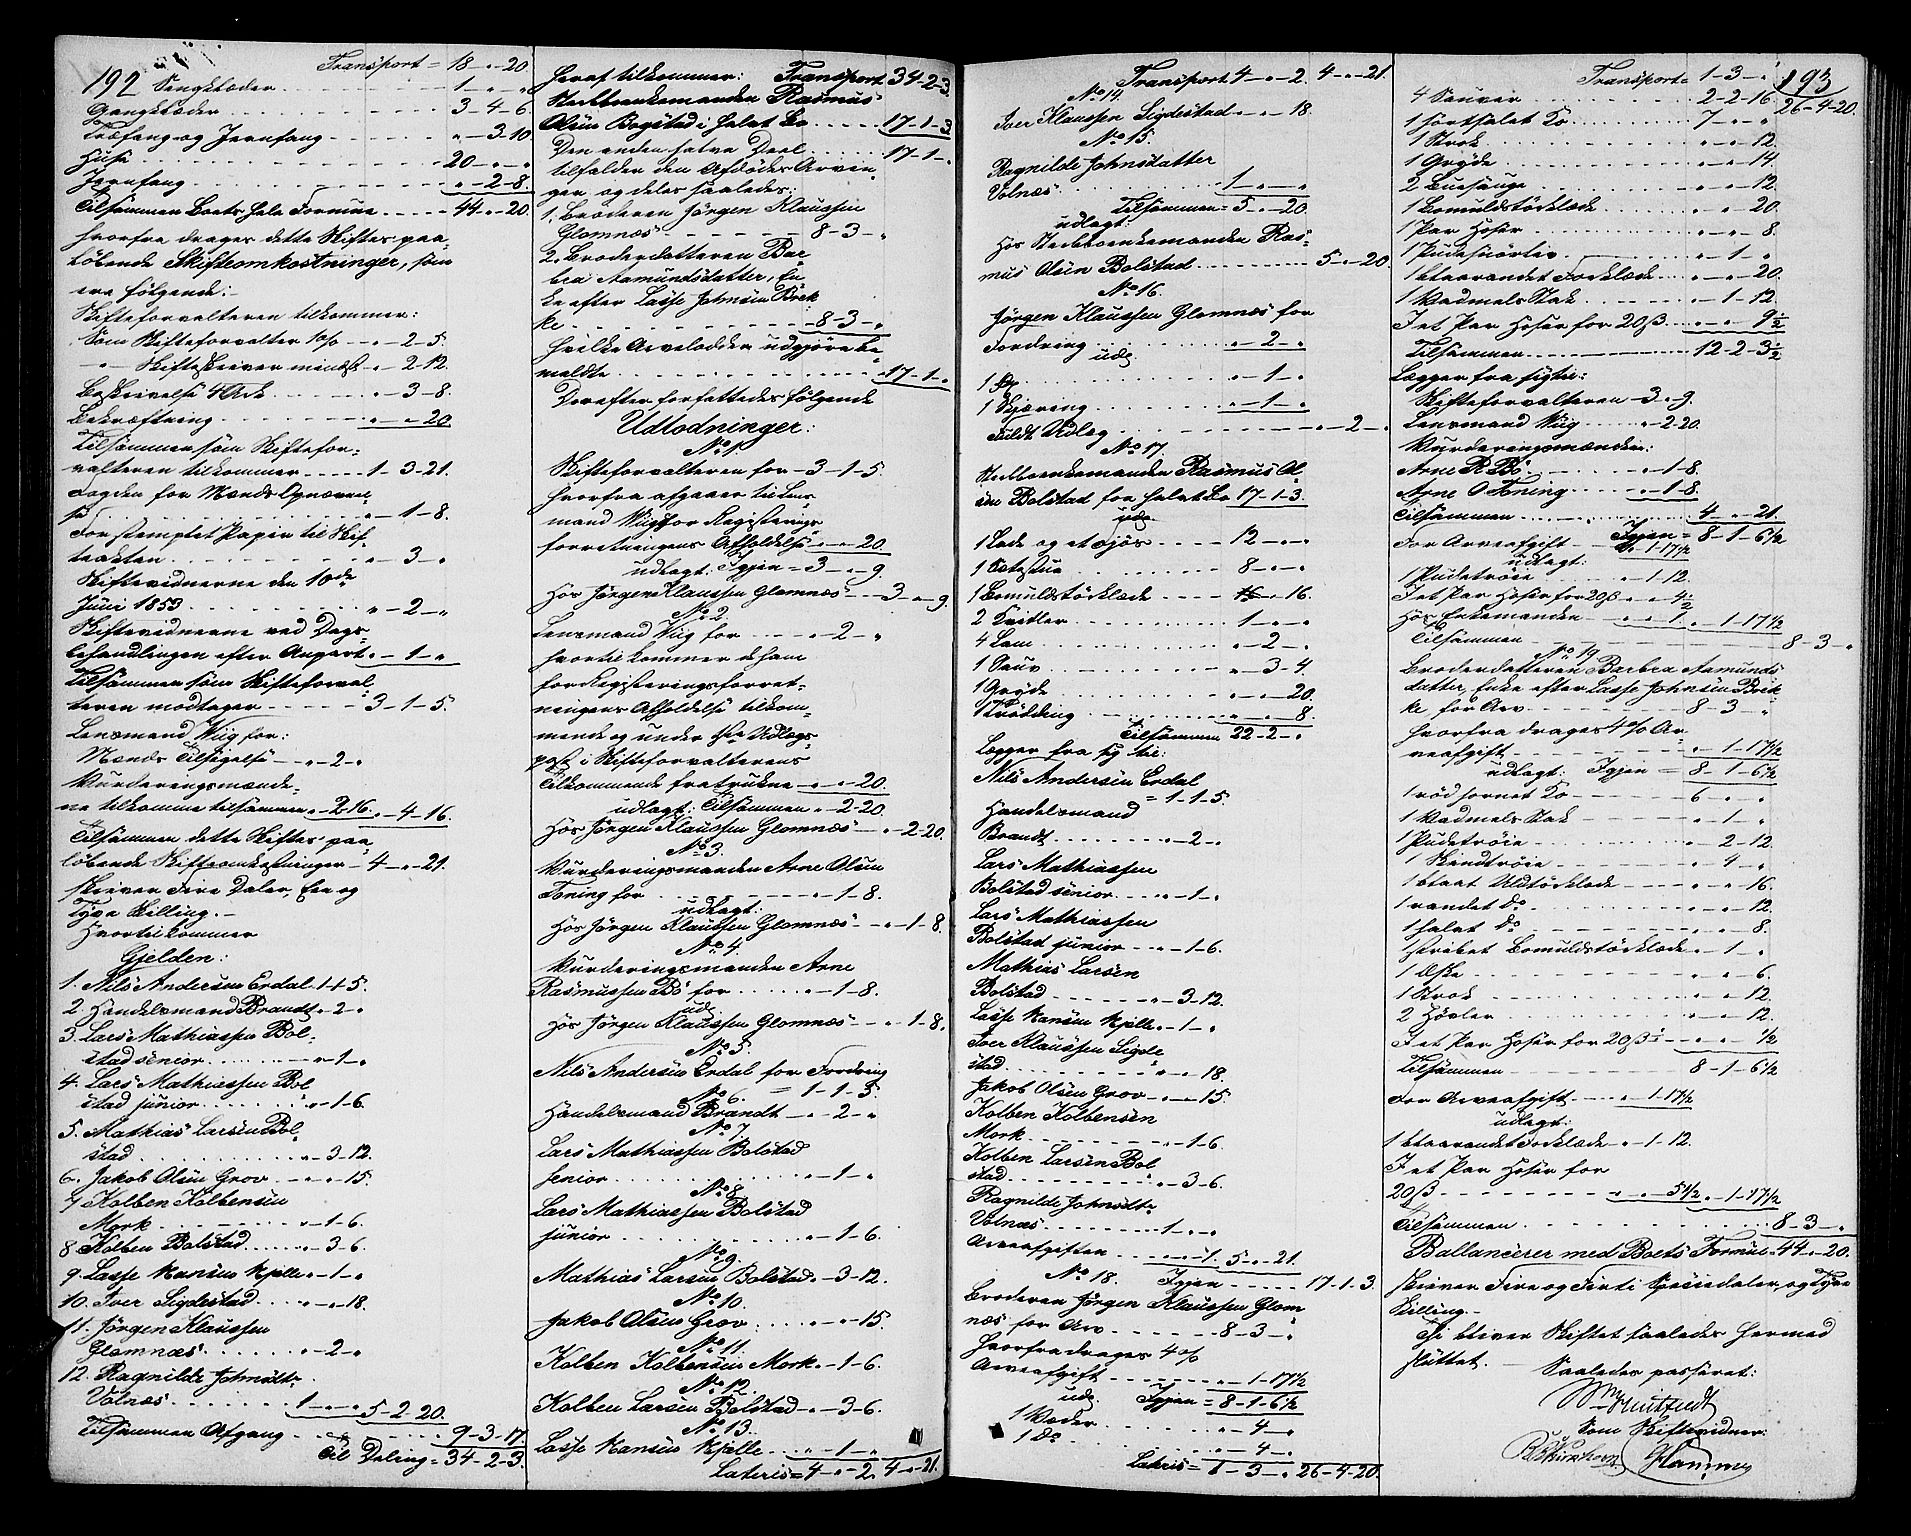 192
Transport = 18 - " - 20
Sengklæder 1 - " - "
Gangklæder 3 - 4 - 6
Træfang og Jernfang " - 3 - 10
Huse 20 - " - "
Jernfang " - 2 - 8.
Tilsammen Boets hele Formue 44 - " - 20.
hvorfra drages dette Skiftes paa-
løbende Skifteomkostninger, som
ere følgende:
Skifteforvalteren tilkommer:
Som Skifteforvalter ½ % " - 2 - 5.
" - Skifteskriver mindst " - 2 - 12.
Beskrivelse 4 Ark " - 3 - 8.
Bekræftning " - " - 20
Tilsammen som Skiftefor-
valteren tilkommer 1 - 3 - 21.
Fogden for Mænds Opnævnel-
se " - 1 - 8.
For stemplet Papir til Skif-
teakten " - 3 - "
Skiftevidnerne den 10de
Juni 1853 " - 2 - "
Skiftevidnerne ved Dags-
behandlingen efter Anpart " - 1 - "
Tilsammen som Skifteforval-
teren modtager 3 - 1 - 5.
Lensmand Wiig for:
Mænds Tilsigelse " - 2 - "
Vurderingsmænde-
ne tilkomme tilsammen " - 2 - 16. " - 4 - 16.
Tilsammen dette Skiftes paa-
løbende Skifteomkostninger 4 - " - 21.
skriver Fire Daler, En og
Tyve Skilling.
Hvortil kommer
Gjelden:
1. Nils Andersen Erdal 1 - 1 - 5.
2. Handelsmand Brandt " - 2 - "
3. Lars Mathiassen Bol-
stad senior " - 1 - "
4. Lars Mathiassen Bol-
stad junior " - 1 - 6.
5. Mathias Larsen Bol-
stad " - 3 - 12.
6. Jakob Olsen Grov " - " - 15.
7 Kolben Kolbensen
Mork " - 1 - 6.
8 Kolben Bolstad " - 3 - 6.
9. Lasse Hansen Kjelle " - 1 - "
10. Iver Sigdestad " - " - 18.
11. Jørgen Klaussen
Glomnæs " - 2 - "
12. Ragnilde Johnsdtr
Volnæs 1 - " - " 5 - 2 - 20.
Tilsammen Afgang 9 - 3 - 17.
Til Deling = 34 - 2 - 3.
Heraf tilkommer: Transport 34 - 2 - 3.
Sterboenkemanden Rasmus
Olsen Bogstad i halvt Bo 17 - 1 - 3
Den anden halve Deel 17 - 1 - "
tilfalder den Afdødes Arvin-
ger og deles saaledes:
1. Broderen Jørgen Klaussen
Glomnæs 8 - 3 - "
2. Broderdatteren Bar-
bra Aamundsdatter, En-
ke efter Lasse Johnsen Brek-
ke 8 - 3 - "
hvilke Arvelodder udgjøre be-
meldte 17 - 1 - "
Derefter forfattedes følgende
Udlodninger:
No 1.
Skifteforvalteren for 3 - 1 - 5
hvorfra afgaaer til Lens-
mand Wiig for Registrerings-
forretningens Afholdelse " - " - 20.
udlagt: Igjen = 3 - " - 9.
Hos Jørgen Klaussen Glomnæs 3 - " - 9.
No 2.
Lensmand Wiig for " - 2 - "
hvortil kommer de ham
for Registreringsforret-
ningens Afholdelse tilkom-
mende og under 1ste Udlægs-
post i Skifteforvalterens
Tilkommende fratrukne " - " - 20.
udlagt: Tilsammen " - 2 - 20.
Hos Jørgen Klaussen Glomnæs " - 2 - 20.
No 3.
Vurderingsmanden Arne Olsen
Toning for " - 1 - 8.
udlagt:
Hos Jørgen Klaussen Glomnæs " - 1 - 8.
No 4.
Vurderingsmanden Arne
Rasmussen Bø for " - 1 - 8.
udl.
Hos Jørgen Klaussen Glomnæs " - 1 - 8.
No 5.
Nils Andersen Erdal for Fordring
= 1 - 1 - 5.
No 6.
Handelsmand Brandt " - 2 - "
No 7
Lars Mathiassen Bolstad
senior " - 1 - "
No 8.
Lars Mathiassen Bolstad
junior " - 1 - 6.
No 9.
Mathias Larsen Bolstad " - 3 - 12.
No 10.
Jakob Olsen Grov " - " - 15.
No 11.
Kolben Kolbensen Mork " - 1 - 6.
No 12.
Kolben Larsen Bolstad " - 3 - 6.
No 13.
Lasse Hansen Kjelle " - 1 - "
Lateris = 4 - " - 2. 4 - " - 21.
Transport 4 - " - 2. 4 - " - 21.
No 14.
Iver Klaussen Sigdestad " - " - 18.
No 15.
Ragnilde Johnsdatter
Volnæs 1 - " - "
Tilsammen = 5 - " - 20.
udlagt:
Hos Sterboenkemanden Ras-
mus Olsen Bolstad 5 - " - 20.
No 16.
Jørgen Klaussen Glomnæs for
Fordring " - 2 - "
udl.
1 " - 1 - "
1 Skjæring " - 1 - "
Fuldt Udlæg " - 2 - "
No 17
Sterboenkemanden Rasmus Ol-
sen Bolstad for halvt Bo 17 - 1 - 3.
udl.
1 Lade og et Fjøs 12 - " - "
1 Østestue 8 - " - "
1 Bomuldstørklæde " - 16.
2 Qvitler 1 - " - "
4 Lam " - 2 - "
1 Sauv " - 3 - 4
1 Gryde " - " - 20
1 " - " - 8.
Tilsammen 22 - 2 - "
Lægger fra sig til:
Nils Andersen Erdal
= 1 - 1 - 5.
Handelsmand
Brandt " - 2 - "
Lars Mathiassen
Bolstad senior " - 1 - "
Lars Mathiassen
Bolstad junior " - 1 - 6.
Mathias Larsen
Bolstad " - 3 - 12.
Lasse Hansen Kjelle " - 1 - "
Iver Klaussen Sigde-
stad " - " - 18.
Jakob Olsen Grov " - " - 15.
Kolben Kolbensen
Mork " - 1 - 6.
Kolben Larsen Bol-
stad " - 3 - 6.
Ragnilde Johnsdtr
Volnæs 1 - " - "
Arveafgiften " - " - 1. 5 - " - 21.
No 18. Igjen 17 - 1 - 3.
Broderen Jørgen Klaussen Glom-
næs for Arv 8 - 3 - "
Hvorfra drages 4 %
Arveafgift " - 1 - 17½
udl. Igjen = 8 - 1 - 6½
1 Væder " - 4 - "
1 Do " - 4 - "
Lateris = 1 - 3 - " 26 - 4 - 20.
193
Transport = 1 - 3 - "
26 - 4 - 20.
4 Sauver 2 - 2 - 16
1 sortfalet Ko 7 - " - "
1 Krok " - " - 12.
1 Gryde " - " - 14.
2 " - " - 12
1 Bomuldstørklæde " - " - 20.
1 Par Hoser " - " - 8.
1 " - 1 - "
1 blaarandet Forklæde " - " - 20.
1 Vadmels Stak " - 1 - 12.
I et Par Hoser for 20 ß " - " - 9½
Tilsammen 12 - 2 - 3½
Lægger fra sig til:
Skifteforvalteren 3 - " - 9.
Lensmand Wiig " - 2 - 20.
Vurderingsmændene:
Arne R. Bø " - 1 - 8.
Arne O Toning " - 1 - 8.
Tilsammen 4 - " - 21.
Igjen = 8 - 1 - 6½
For Arveafgift " - 1 - 17½
udlagt:
1 Pudetrøie " - 1 - 12.
I et Par Hoser for 20 ß " - " - 4½
Hos Enkemanden " - " - 1. " - 1 - 17½
Tilsammen 8 - 3 - "
No 19
Broderdatteren Barbra Aamunds-
datter, Enke efter Lasse Johnsen Brek-
ke for Arv 8 - 3 - "
hvorfra drages 4 % Ar-
veafgift " - 1 - 17½
udlagt: Igjen = 8 - 1 - 6½
1 rød hornet Ko 6 - " - "
1 Vadmels Stak " - 1 - "
1 Pudetrøie " - 2 - 12
1 Skindtrøie " - 4 - "
1 blaat Uldtørklæde " - " - 16.
1 randet Do " - " - 12.
1 falet Do " - " - 8.
1 stribet Bomuldstørklæde " - 1 - "
1 Æske " - " - 6.
1 Krok " - " - 12.
2 Høvler " - " - 12.
I et Par Hoser for 20 ß " - " - ½
Tilsammen 8 - 1 - 6½
For Arveafgift " - 1 - 17½
udlagt:
1 blaarandet Forklæde " - 1 - 12.
I et Par Hoser for
20 ß " - " - 5½ " - 1 - 17½
Tilsammen 8 - 3 - "
Ballancerer med Boets Formue 44 - " - 20.
skriver Fire og Firti Speciedaler, og Tyve
Skilling.
Ti bliver Skiftet saaledes hermed
sluttet.
Saaledes passeret:
Som Skiftevidner: